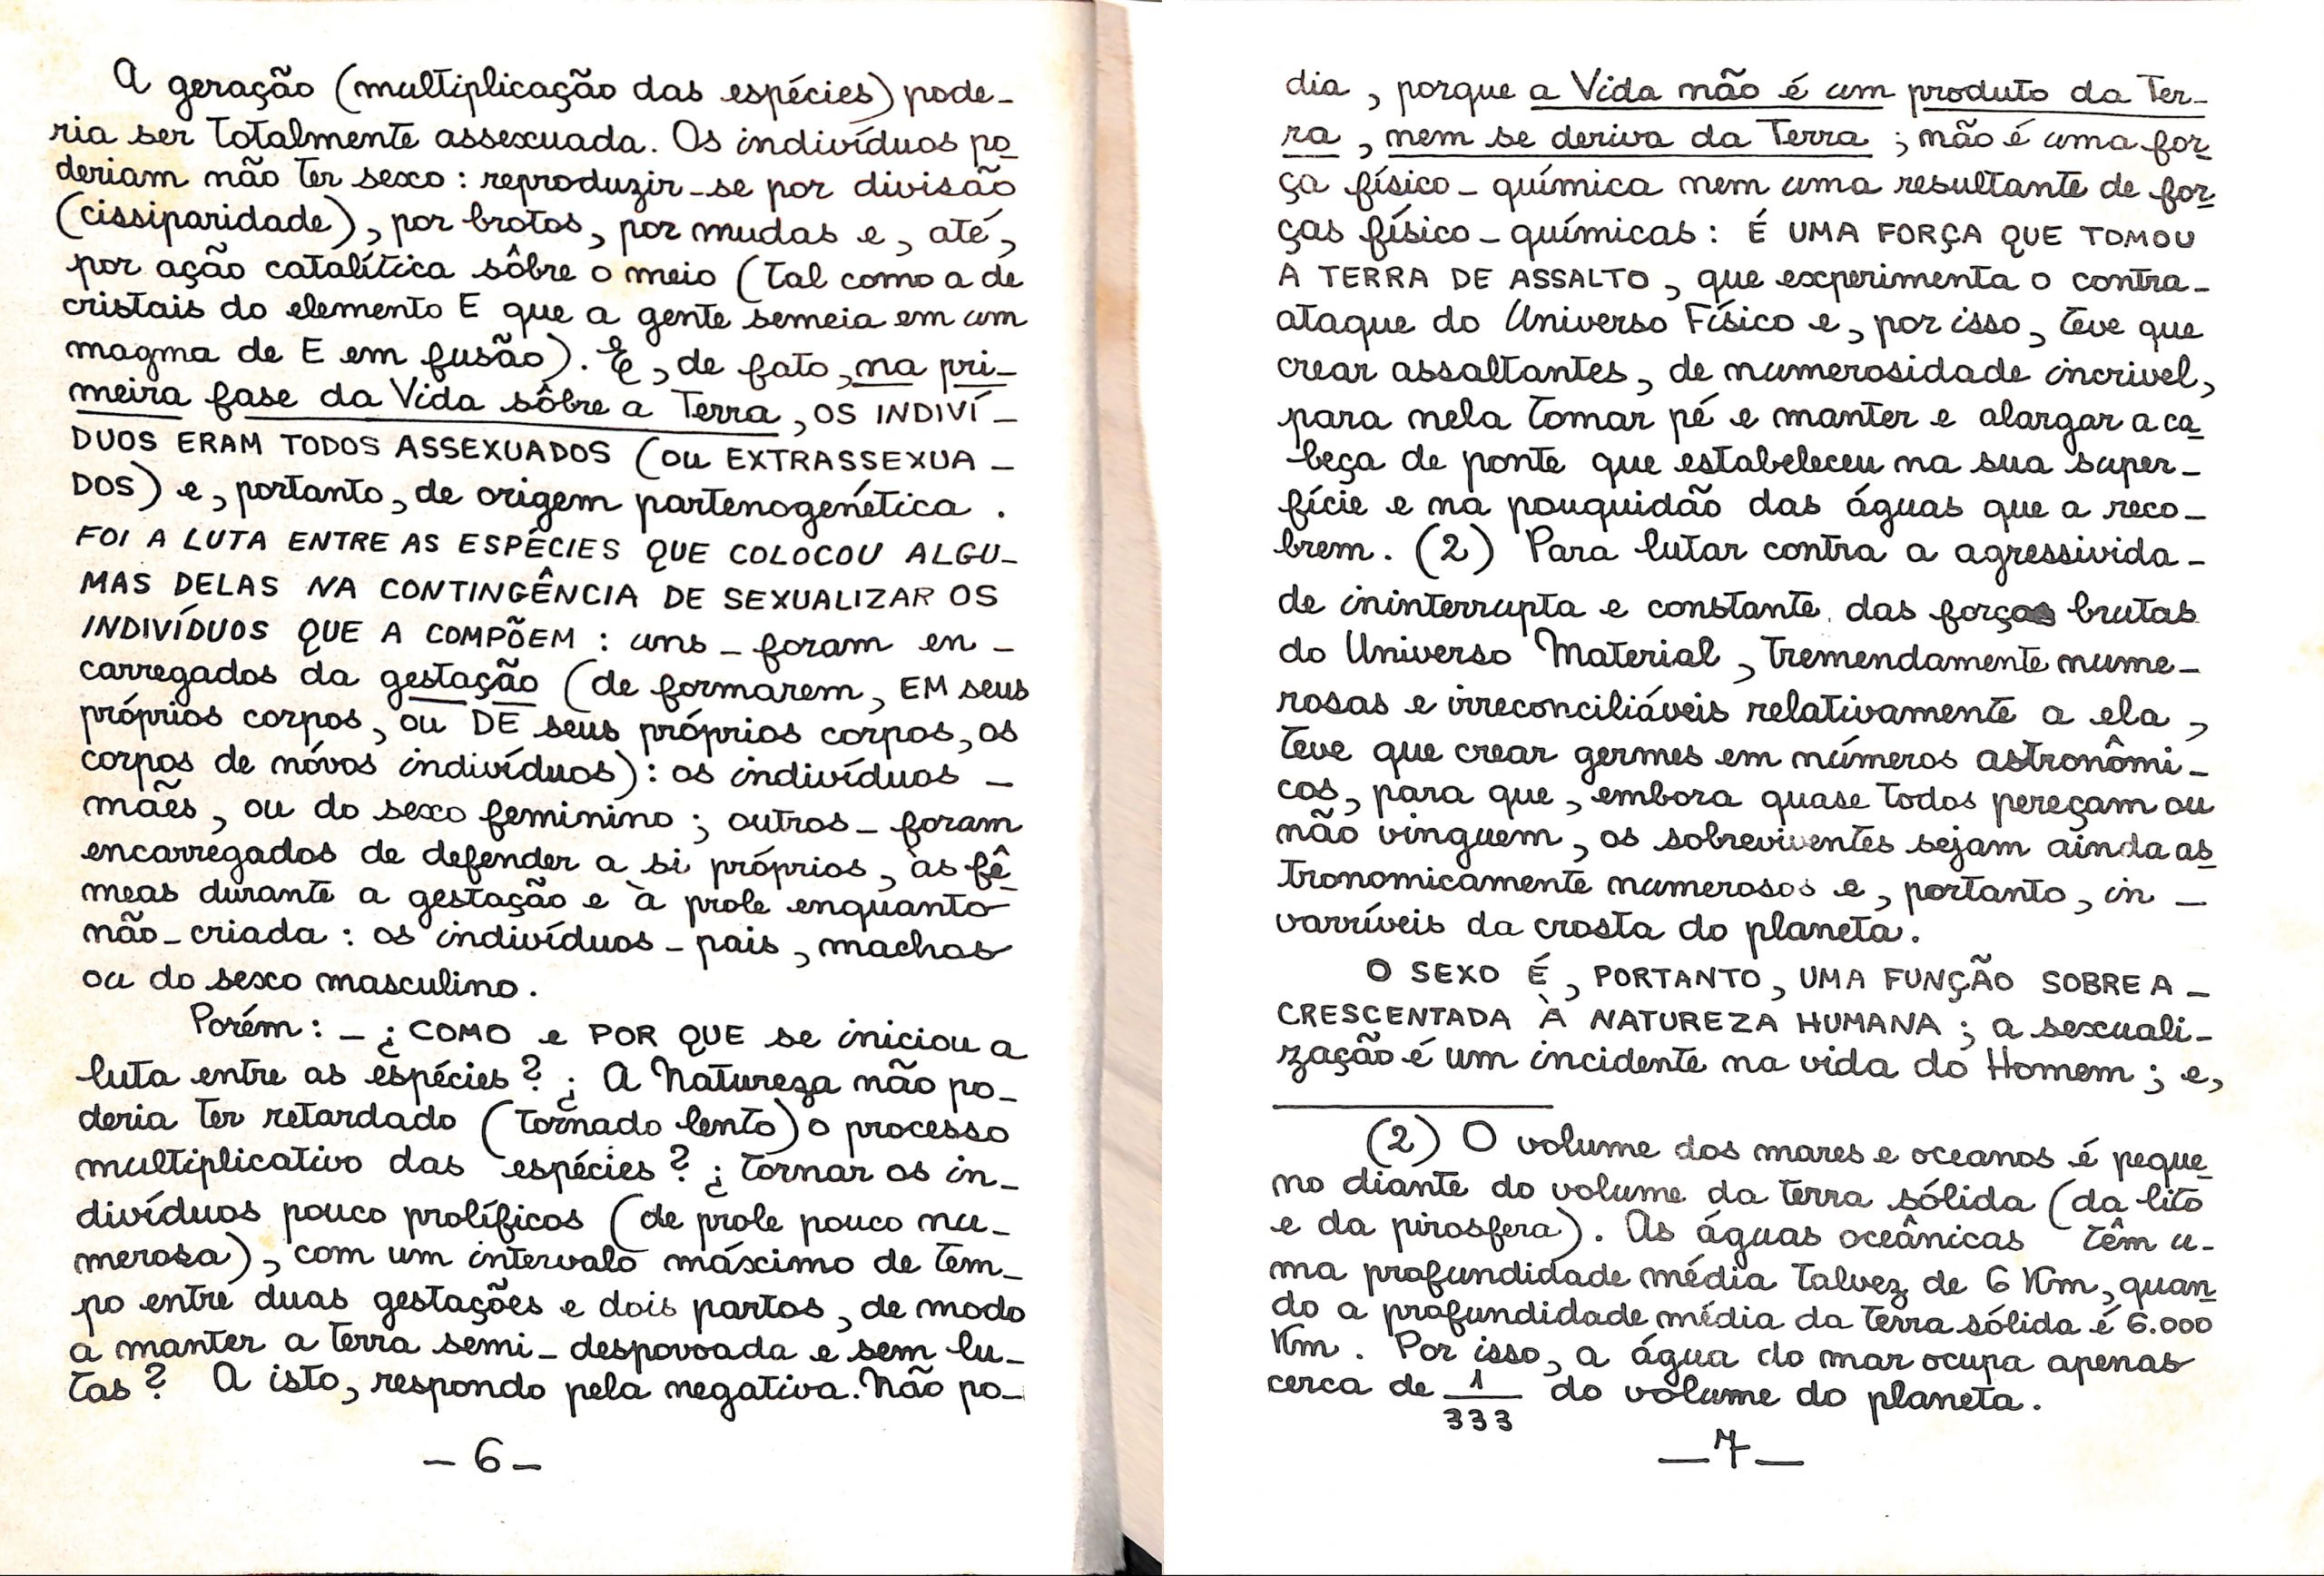 A geração (multiplicação das espécies) pode-
ria ser totalmente assexuada. Os indivíduos po
deriam não ter sexo: reproduzir-se por divisão
(cissiparidade), por brotos, por mudas e, até,
por ação catalítica sôbre o meio (tal como a de
cristais do elemento E que a gente semeia em um
magma de E em fusão). E, de fato, na pri-
meira fase da Vida sôbre a Terra, OS INDIVÍ-
DUOS ERAM TODOS ASSEXUADOS (ou EXTRASSEXUA-
DOS) e, portanto, de origem partenogenética.
FOI A LUTA ENTRE AS ESPÉCIES QUE COLOCOU ALGU-
MAS DELAS NA CONTINGÊNCIA DE SEXUALIZAR OS
INDIVÍDUOS QUE A COMPÕEM: uns - foram en-
carregados da gestação (de formarem, EM seus
próprios corpos, ou DE seus próprios corpos, os
corpos de nóvos indivíduos): os indivíduos -
mães, ou do sexo feminino; outros - foram
encarregados de defender a si próprios, às fê
meas durante a gestação e à prole enquanto
não-criada: os indivíduos-pais, machos
ou do sexo masculino.
Porém: - ¿ COMO e POR QUE se iniciou a
luta entre as espécies? ¿ A Natureza não po-
deria ter retardado (tornado lento) o processo
multiplicativo das espécies? ¿ tornar os in-
divíduos pouco prolíficos (de prole pouco nu-
merosa), com um intervalo máximo de tem-
po entre duas gestações e dois partos, de modo
a manter a terra semi-despovoada e sem lu-
tas? A isto, respondo pela negativa. Não po-
- 6 -
dia, porque a Vida não é um produto da Ter-
ra, nem se deriva da Terra; não é uma for
ça físico-química nem uma resultante de for
ças físico-químicas: É UMA FORÇA QUE TOMOU
A TERRA DE ASSALTO, que experimenta o contra-
ataque do Universo Físico e, por isso, teve que
crear assaltantes, de numerosidade incrivel,
para nela tomar pé e manter e alargar a ca
beça de ponte que estabeleceu na sua super-
fície e na pouquidão das águas que a reco-
brem. (2) Para lutar contra a agressivida-
de ininterrupta e constante das forças brutas
do Universo Material, tremendamente nume-
rosas e irreconciliáveis relativamente a ela,
teve que crear germes em números astronômi-
cos, para que, embora quase todos pereçam ou
não vinguem, os sobreviventes sejam ainda as
tronomicamente numerosos e, portanto, in-
varríveis da crosta do planeta.
O SEXO É, PORTANTO, UMA FUNÇÃO SOBREA-
CRESCENTADA À NATUREZA HUMANA; a sexuali-
zação é um incidente na vida do Homem; e,
(2) O volume dos mares e oceanos é peque
no diante do volume da terra sólida (da lito
e da pirosfera). As águas oceânicas têm u-
ma profundidade média talvez de 6 Km, quan
do a profundidade média da terra sólida é 6.000
Km. Por isso, a água do mar ocupa apenas
cerca de 1/333 do volume do planeta.
- 7 -